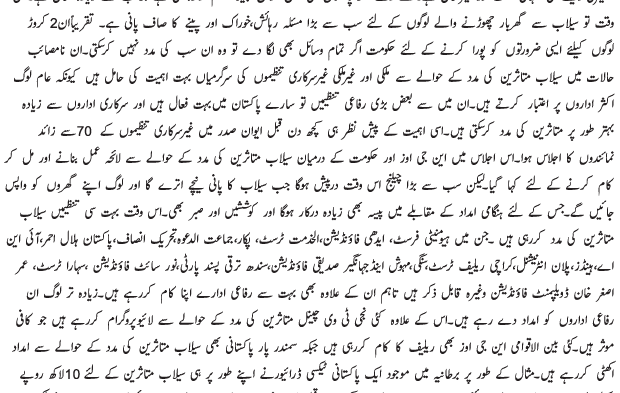 وقت تو سیلاب سے گھر بار چھوڑنے والے لوگوں کے لئے سب سے بڑا مسئلہ رہائش،خوراک اور پینے کا صاف پانی ہے۔ تقریباًان2 کروڑ
لوگوں کیلئے ایسی ضرورتوں کو پورا کرنے کے لئے حکومت اگر تمام وسائل بھی لگا دے تو وہ ان سب کی مدد نہیں کرسکتی۔ان نامصائب
حالات میں سیلاب متاثرین کی مدد کے حوالے سے ملکی اور غیرملکی غیرسرکاری تنظیموں کی سرگرمیاں بہت اہمیت کی حامل ہیں کیونکہ عام لوگ
اکثر اداروں پر اعتبار کرتے ہیں۔ان میں سے بعض بڑی رفاعی تنظیمیں تو سارے پاکستان میں بہت فعال ہیں اور سرکاری اداروں سے زیادہ
بہتر طور پر متاثرین کی مدد کرسکتی ہیں۔اسی اہمیت کے پیش نظر ہی کچھ دن قبل ایوان صدر میں غیرسرکاری تنظیموں کے 70سے زائد
نمائندوں کا اجلاس ہوا۔اس اجلاس میں این جی اوز اور حکومت کے درمیان سیلاب متاثرین کی مدد کے حوالے سے لائحہ عمل بنانے اور مل کر
کام کرنے کے لئے کہا گیا۔لیکن سب سے بڑا چیلنج اس وقت درپیش ہوگا جب سیلاب کا پانی نیچے اترے گا اور لوگ اپنے گھروں کو واپس
جائیں گے۔جس کے لئے ہنگامی امداد کے مقابلے میں پیسہ بھی زیادہ درکار ہوگا اور کوششیں اور صبر بھی۔اس وقت بہت سی تنظیمیں سیلاب
متاثرین کی مدد کررہی ہیں ۔جن میں ہیومنیٹی فرسٹ، ایدھی فاؤنڈیشن،الخدمت ٹرسٹ، پکار،جماعت الدعوہ،تحریک انصاف،پاکستان ہلال احمر،آئی این
اے،ہینڈز،پلان انٹرنیشنل،کراچی ریلیف ٹرسٹ،سنگی،مہوش اینڈجہانگیر صدیقی فاؤنڈیشن،سندھ ترقی پسند پارٹی،نور سائٹ فاؤنڈیشن ،سہارا ٹرسٹ، عمر
اصغر خان ڈویلپمنٹ فاؤنڈیشن وغیرہ قابل ذکر ہیں تاہم ان کے علاوہ بھی بہت سے رفاعی ادارے اپنا کام کررہے ہیں۔زیادہ تر لوگ ان
رفاعی اداروں کو امداد دے رہے ہیں۔اس کے علاوہ کئی نجی ٹی وی چینل متاثرین کی مدد کے حوالے سے لائیوپروگرام کررہے ہیں جو کافی
موثر ہیں۔کئی بین الاقوامی این جی اوز بھی ریلیف کا کام کررہی ہیں جبکہ سمندر پار پاکستانی بھی سیلاب متاثرین کی مدد کے حوالے سے امداد
اکٹھی کررہے ہیں۔مثال کے طور پر برطانیہ میں موجود ایک پاکستانی ٹیکسی ڈرائیورنے اپنے طور پر ہی سیلاب متاثرین کے لئے 10لاکھ روپے